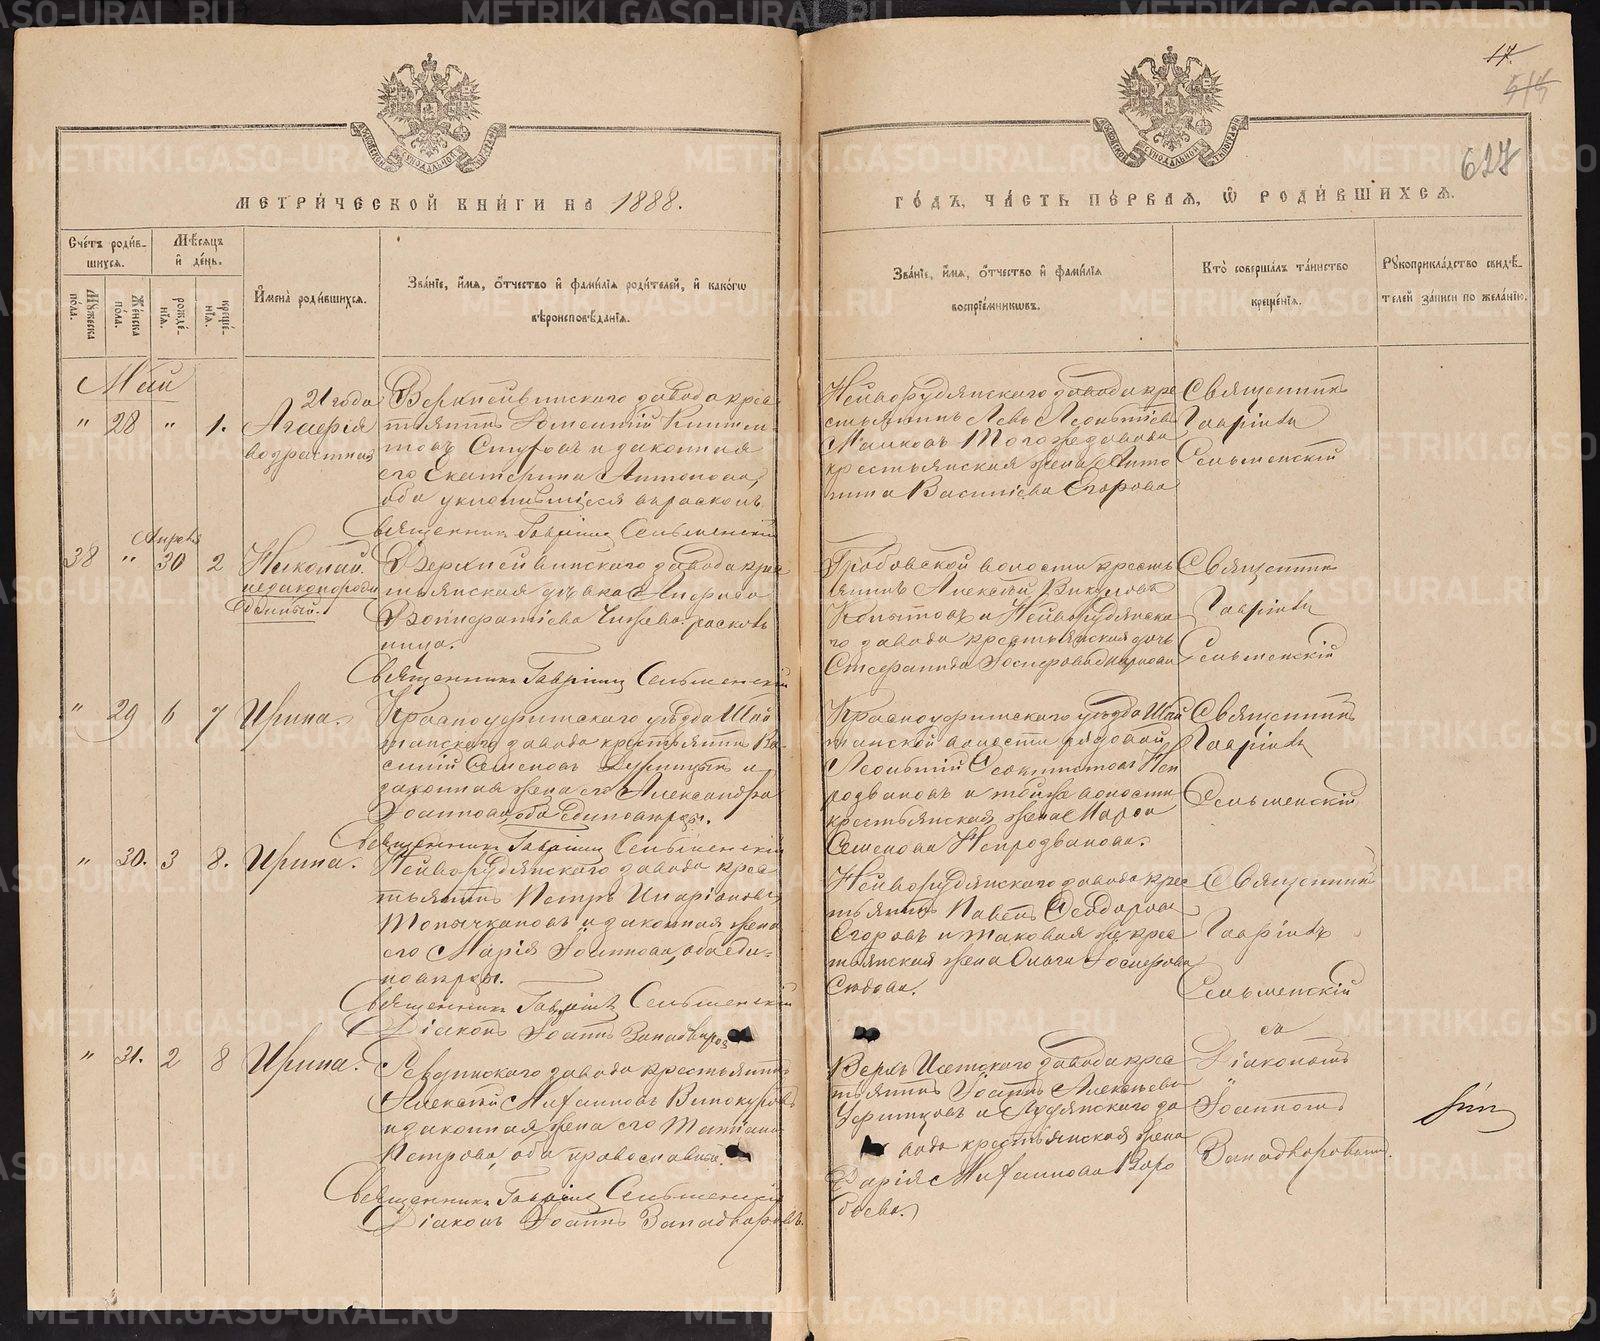 17.
515
627
МЕТРИ́ЧЕСКОЙ КНИ́ГИ НА 1888.
ГО́ДЪ, ЧА́СТЬ ПЕ́РВАЯ, Ѿ РОДИ́ВШИХСЯ.
Сче́тъ роди́в-
шихся.
Мѣ́сяцъ
и҆ де́нь.
Му́жеска
по́ла.
Же́нска
по́ла.
рожде́-
нїя.
креще́-
нїя.
И҆мена̀ роди́вшихся.
Зва́нїе, и҆́мя, ѻ҆́тчество и҆ фами́лїя роди́телей, и҆ како́гѡ
вѣроисповѣ́данїя.
Зва́нїе, и҆́мя, ѻ҆́тчество и҆ фами́лїя
воспрїе́мникѡвъ.
Кто̀ соверша́лъ та́инство
креще́нїя.
Рꙋкоприкла́дство свидѣ́-
телей за́писи по жела́нїю.
Май
" 28 " 1.
21 года
Агаѳія
возрастная
Верхнейвинскаго завода крес
тьянинъ Дометій Климен
товъ и законная
его Екатерина Антонова,
оба уклонившіеся въ расколъ.
Священникъ Гавріилъ Сельменскій
Нейворудянскаго завода кре
стьянинъ Левъ Леонтіевъ
того же завода
крестьянская жена Анто
нина Василіева Егорова
Священникъ
Гавріилъ
Сельменскій
Апреля
38 " 30 2
Николай
незаконорож
денный.
Верхнейвинскаго завода крес
тьянская дѣвка
расколь
ница.
Священникъ Гавріилъ Сельменскій
Гробовской волости кресть
янинъ Алексѣй Викуловъ
Копытовъ и Нейворудянска
го завода крестьянская дочь
Стефанида
Священникъ
Гавріилъ
Сельменскій
" 29 6 7 Ирина.
Красноуфимскаго уѣзда Шай
танскаго завода крестьянинъ Ва
силій Семеновъ и
законная жена его Александра
Іоаннова, оба единовѣрцы.
Священникъ Гавріилъ Сельменскій
Красноуфимскаго уѣзда Шай
танской волости рядовой
Леонтій Ѳеоктистовъ Неп
роз­вановъ и той же волости
крестьянская жена Марѳа
Семенова Непрозванова.
Священникъ
Гавріилъ
Сельменскій
" 30. 3 8. Ирина.
Нейворудянскаго завода крес
тьянинъ Петръ Иларіоновъ
Топычкановъ и законная жена
его Марія Іоаннова, оба еди-
новѣрцы.
Священникъ Гавріилъ Сельменскій
Діаконъ Іоаннъ Западворовъ
Нейворудянскаго завода крес
тьянинъ Павелъ Ѳеодоровъ
Егоровъ и таковая же крес
тьянская жена Ольга Іосифова
Сюдова.
Священникъ
Гавріилъ
Сельменскій
" 31. 2 8 Ирина.
Ревдинскаго завода крестьянинъ
Алексѣй Михаиловъ Винокуровъ
и законная жена его Татіана
Петрова, оба православные.
Священникъ Гавріилъ Сельменскій
Діаконъ Іоаннъ Западворовъ.
Верхъ Исетскаго завода крес
тьянинъ Іоаннъ Алексѣевъ
и Рудянскаго за
вода крестьянская жена
Дарія Михаилова Воро
бьева.
съ
Діакономъ
Іоанномъ
Западворовымъ.
METRIKI.GASO-URAL.RU